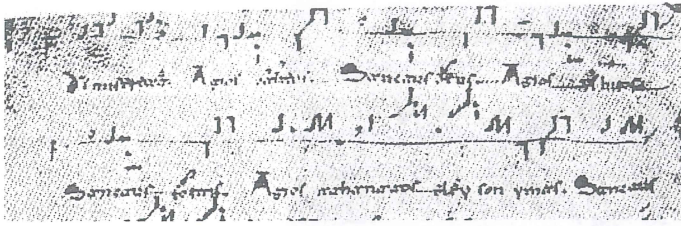 Agios otheus. Sanctus deus. Agios
Sanctus fortis. Agios athanatos eley son ymas. Sanctus